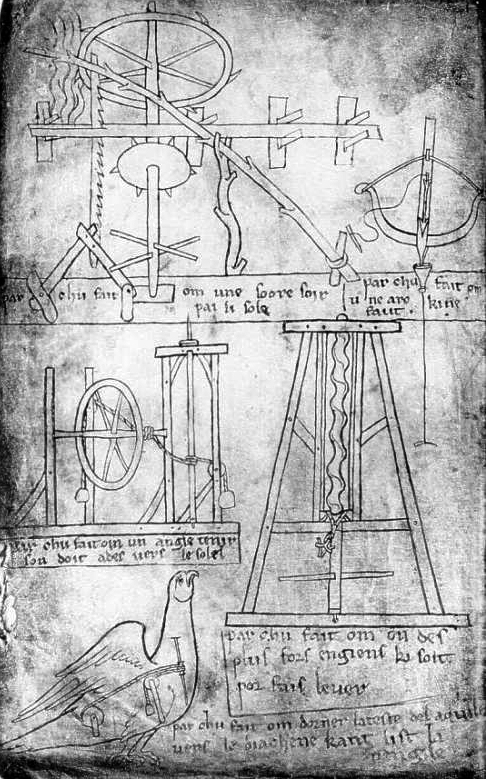 par chu fait om une soore soir
par li sole
par chu fait om
u ne arc kine
faut.
par chu fait om un angle tenir
son doit ades vers le solel
par chu fait om on des
plus fors engiens ki soit
por fais lever
par chu fait om dorner lateste del aquile
vers le diachene kant list la
vangile